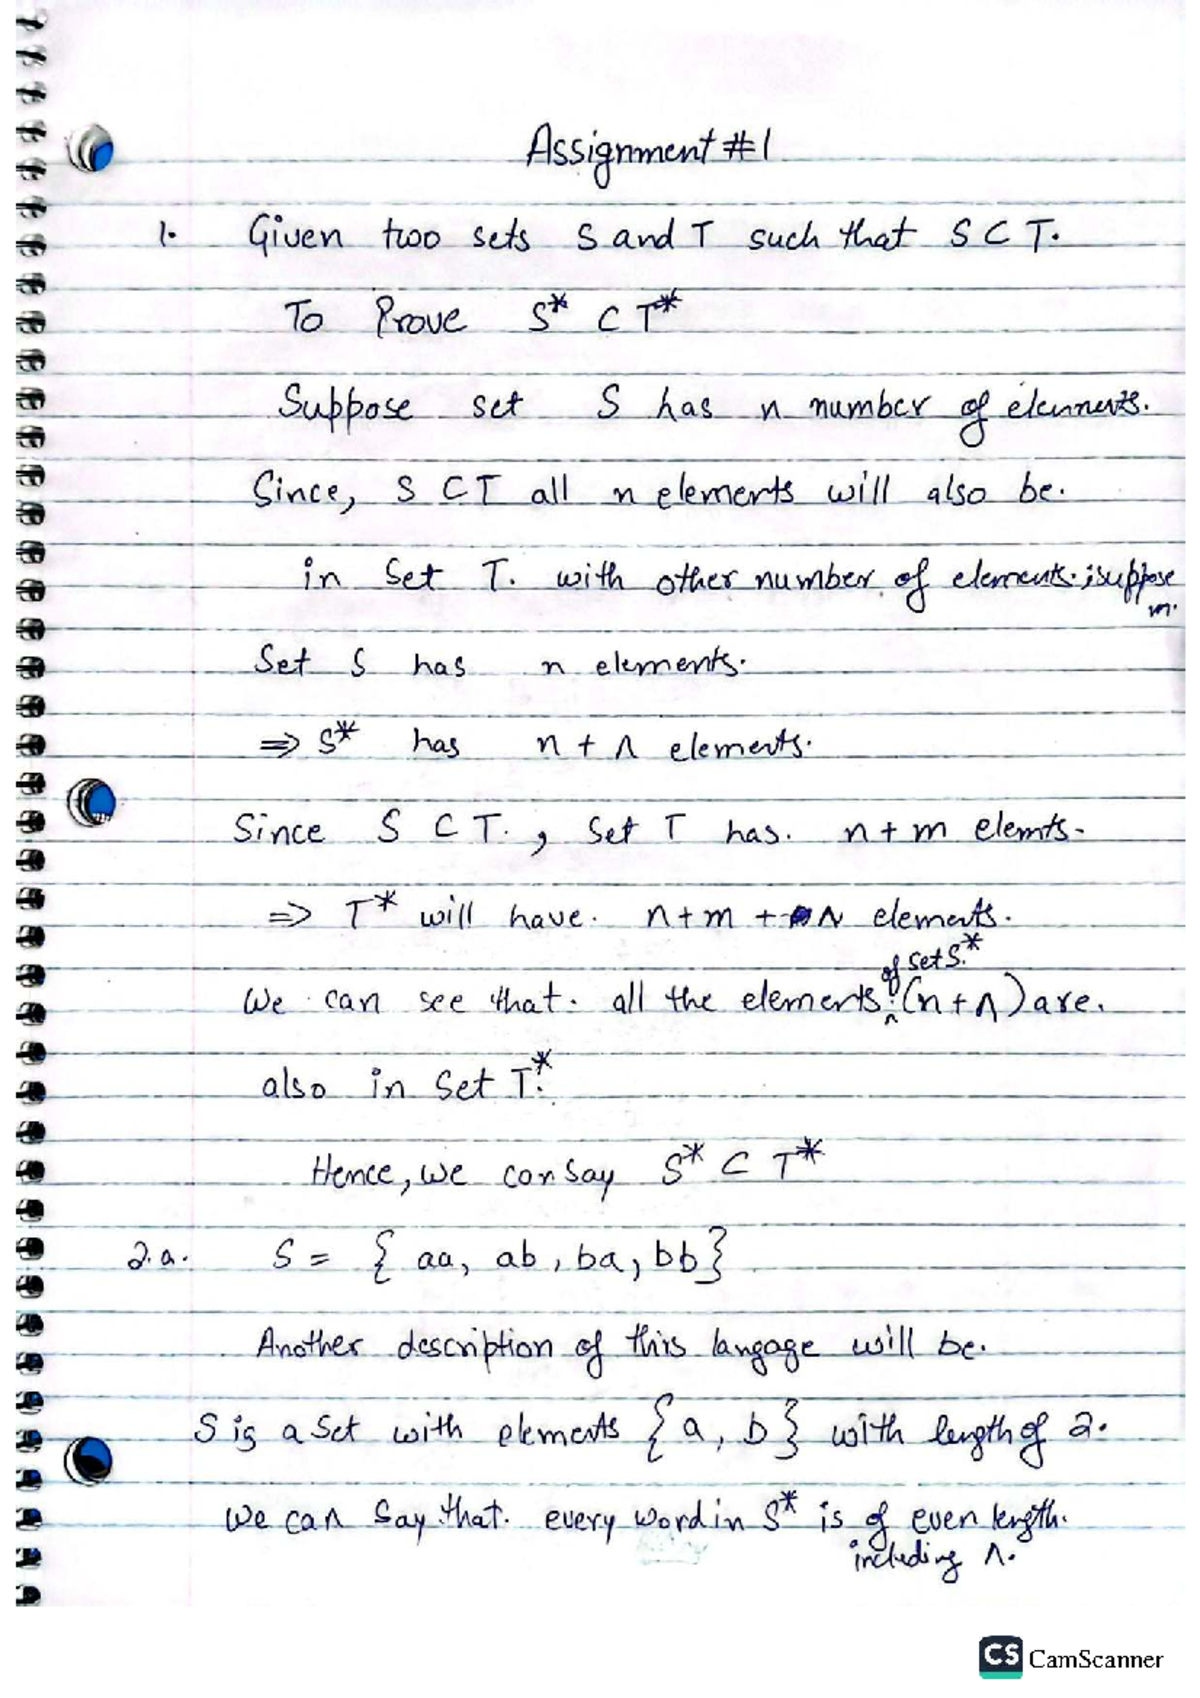 Assignment #1
1. Given two sets S and T such that S ⊂ T.
To Prove S* ⊂ T*
Suppose set S has n number of elements.
Since, S ⊂ T all n elements will also be.
in Set T. with other number of elements. ; suppose
m.
Set S has n elements.
⇒ S* has n + Λ elements.
Since S ⊂ T. , Set T has. n + m elemts.
⇒ T* will have. n + m + Λ elements.
of Set S.*
We can see that. all the elements (n + Λ) are.
also in Set T*.
Hence, we can say S* ⊂ T*
2.a. S = { aa, ab, ba, bb}
Another description of this langage will be.
S is a Set with elements {a, b} with length of 2.
We can Say that. every word in S* is of even length.
including Λ.
CS CamScanner